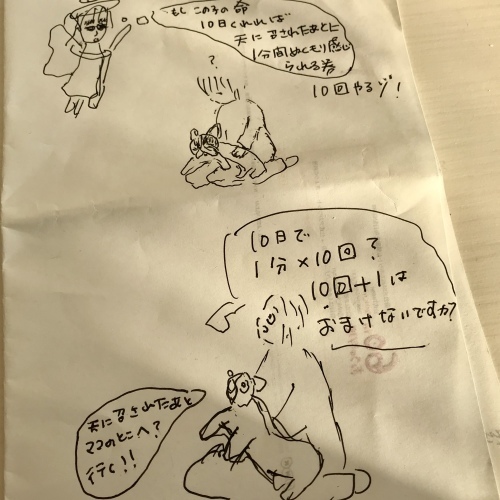 もし この子の命
10日くれれば
天に召されたあとに
1分間ぬくもり感じ
られる券
10回やるゾ!
?
10日で
1分×10回?
10回+1は
おまけないですか?
天に召されたあと
ママのとこへ?
行く!!